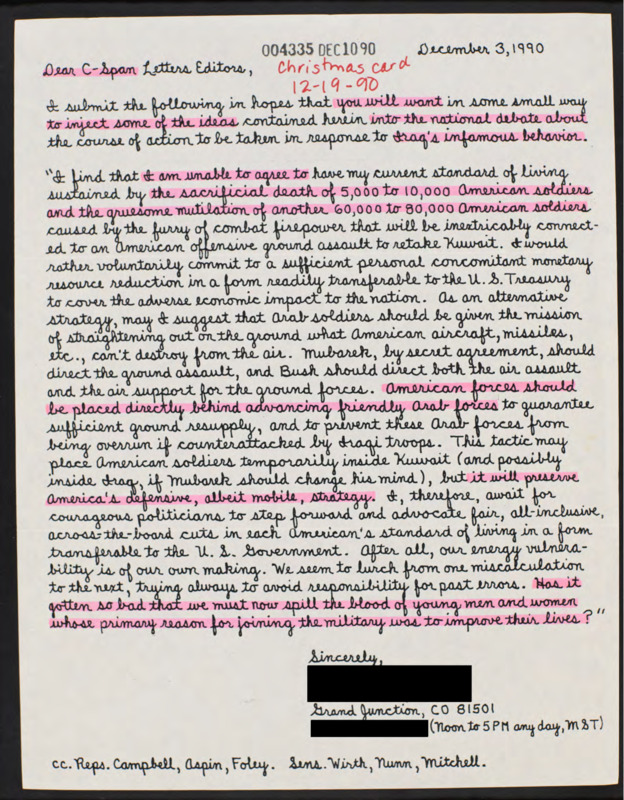 004335 DEC1090 December 3, 1990
Dear C-Span Letters Editors, Christmas card
12-19-90
I submit the following in hopes that you will want in some small way
to inject some of the ideas contained herein into the national debate about
the course of action to be taken in response to Iraq's infamous behavior.
"I find that I am unable to agree to have my current standard of living
sustained by the sacrificial death of 5,000 to 10,000 American soldiers
and the gruesome mutilation of another 60,000 to 80,000 American soldiers
caused by the furry of combat firepower that will be inextricably connect-
ed to an American offensive ground assault to retake Kuwait. I would
rather voluntarily commit to a sufficient personal concomitant monetary
resource reduction in a form readily transferable to the U.S. Treasury
to cover the adverse economic impact to the nation. As an alternative
strategy, may I suggest that Arab soldiers should be given the mission
of straightening out on the ground what American aircraft, missiles,
etc., can't destroy from the air. Mubarek, by secret agreement, should
direct the ground assault, and Bush should direct both the air assault
and the air support for the ground forces. American forces should
be placed directly behind advancing friendly Arab forces to guarantee
sufficient ground resupply, and to prevent these Arab forces from
being overrun if counterattacked by Iraqi troops. This tactic may
place American soldiers temporarily inside Kuwait (and possibly
inside Iraq, if Mubarek should change his mind), but it will preserve
America's defensive, albeit mobile, strategy. I, therefore, await for
courageous politicians to step forward and advocate fair, all-inclusive,
across-the-board cuts in each American's standard of living in a form
transferable to the U.S. Government. After all, our energy vulnera-
bility is of our own making. We seem to lurch from one miscalculation
to the next, trying always to avoid responsibility for past errors. Has it
gotten so bad that we must now spill the blood of young men and women
whose primary reason for joining the military was to improve their lives?"
Sincerely,
Grand Junction, CO 81501
(Noon to 5 PM any day, MST)
cc. Reps. Campbell, Aspin, Foley. Sens. Wirth, Nunn, Mitchell.